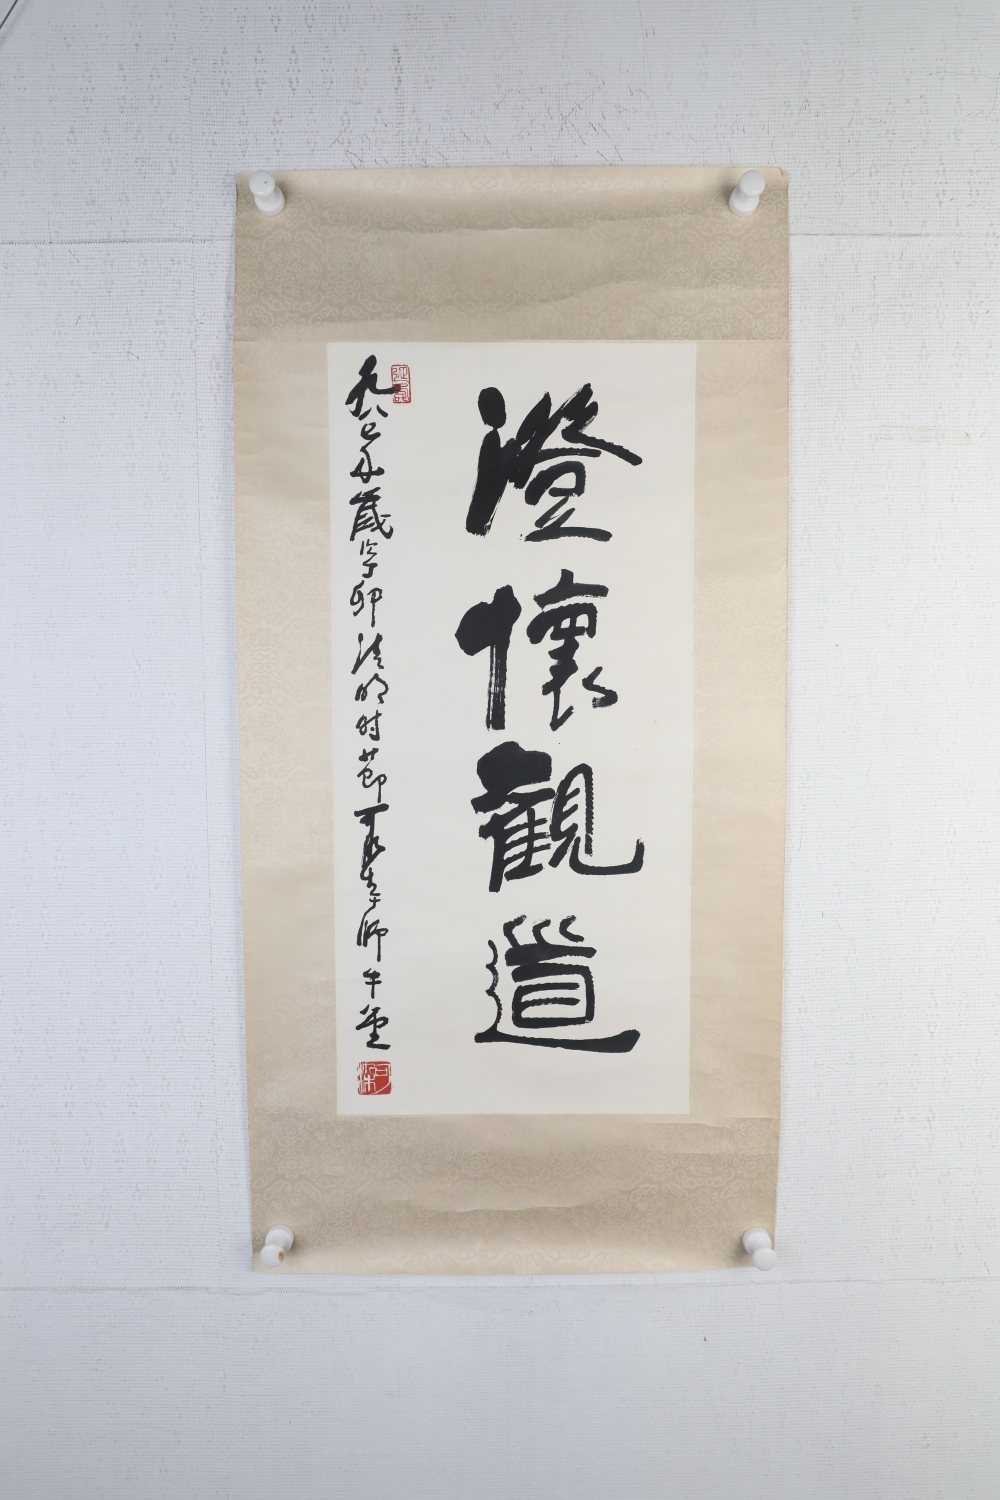 澄懷觀道
一九八七年歲次丁卯清明时節可染於師牛堂
可染